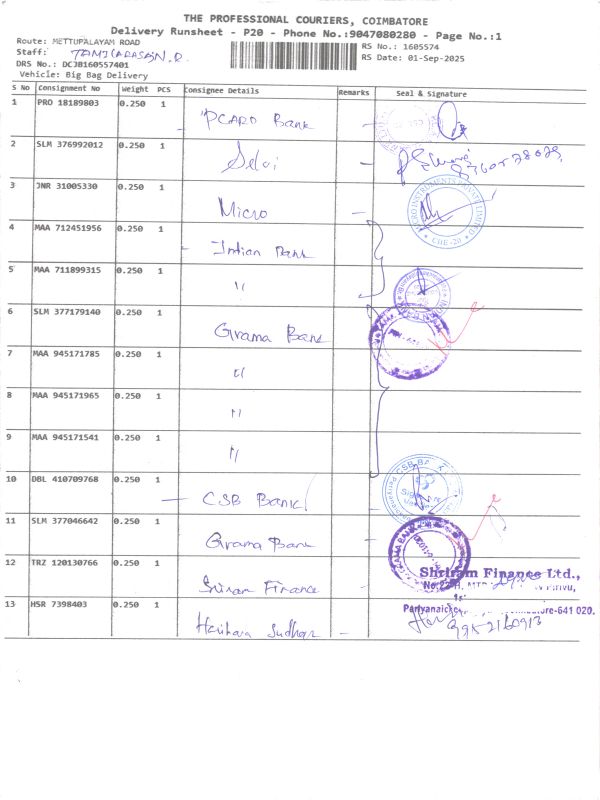 THE PROFESSIONAL COURIERS, COIMBATORE
Delivery Runsheet - P20 - Phone No.:9047080280 - Page No.:1
Route: METTUPALAYAM ROAD
RS No.: 1605574
Staff: TAMILARASAN.R
RS Date: 01-Sep-2025
DRS No.: DCJB160557401
Vehicle: Big Bag Delivery
S No Consignment No Weight PCS Consignee Details Remarks Seal & Signature
1 PRO 18189803 0.250 1 PCARD Bank
2 SLM 376992012 0.250 1 Selvi
3 JNR 31005330 0.250 1 Micro
MICRO INSTRUMENTS PRIVATE LIMITED
CBE-20
4 MAA 712451956 0.250 1 Indian Bank
5 MAA 711899315 0.250 1 "
6 SLM 377179140 0.250 1 Grama Bank
7 MAA 945171785 0.250 1 "
8 MAA 945171965 0.250 1 "
9 MAA 945171541 0.250 1 "
10 DBL 410709768 0.250 1 CSB Bank
CSB BANK
11 SLM 377046642 0.250 1 Grama Bank
12 TRZ 120130766 0.250 1 Sriram Finance
Shriram Finance Ltd.,
13 HSR 7398403 0.250 1 Harihara Sudhan
641 020.